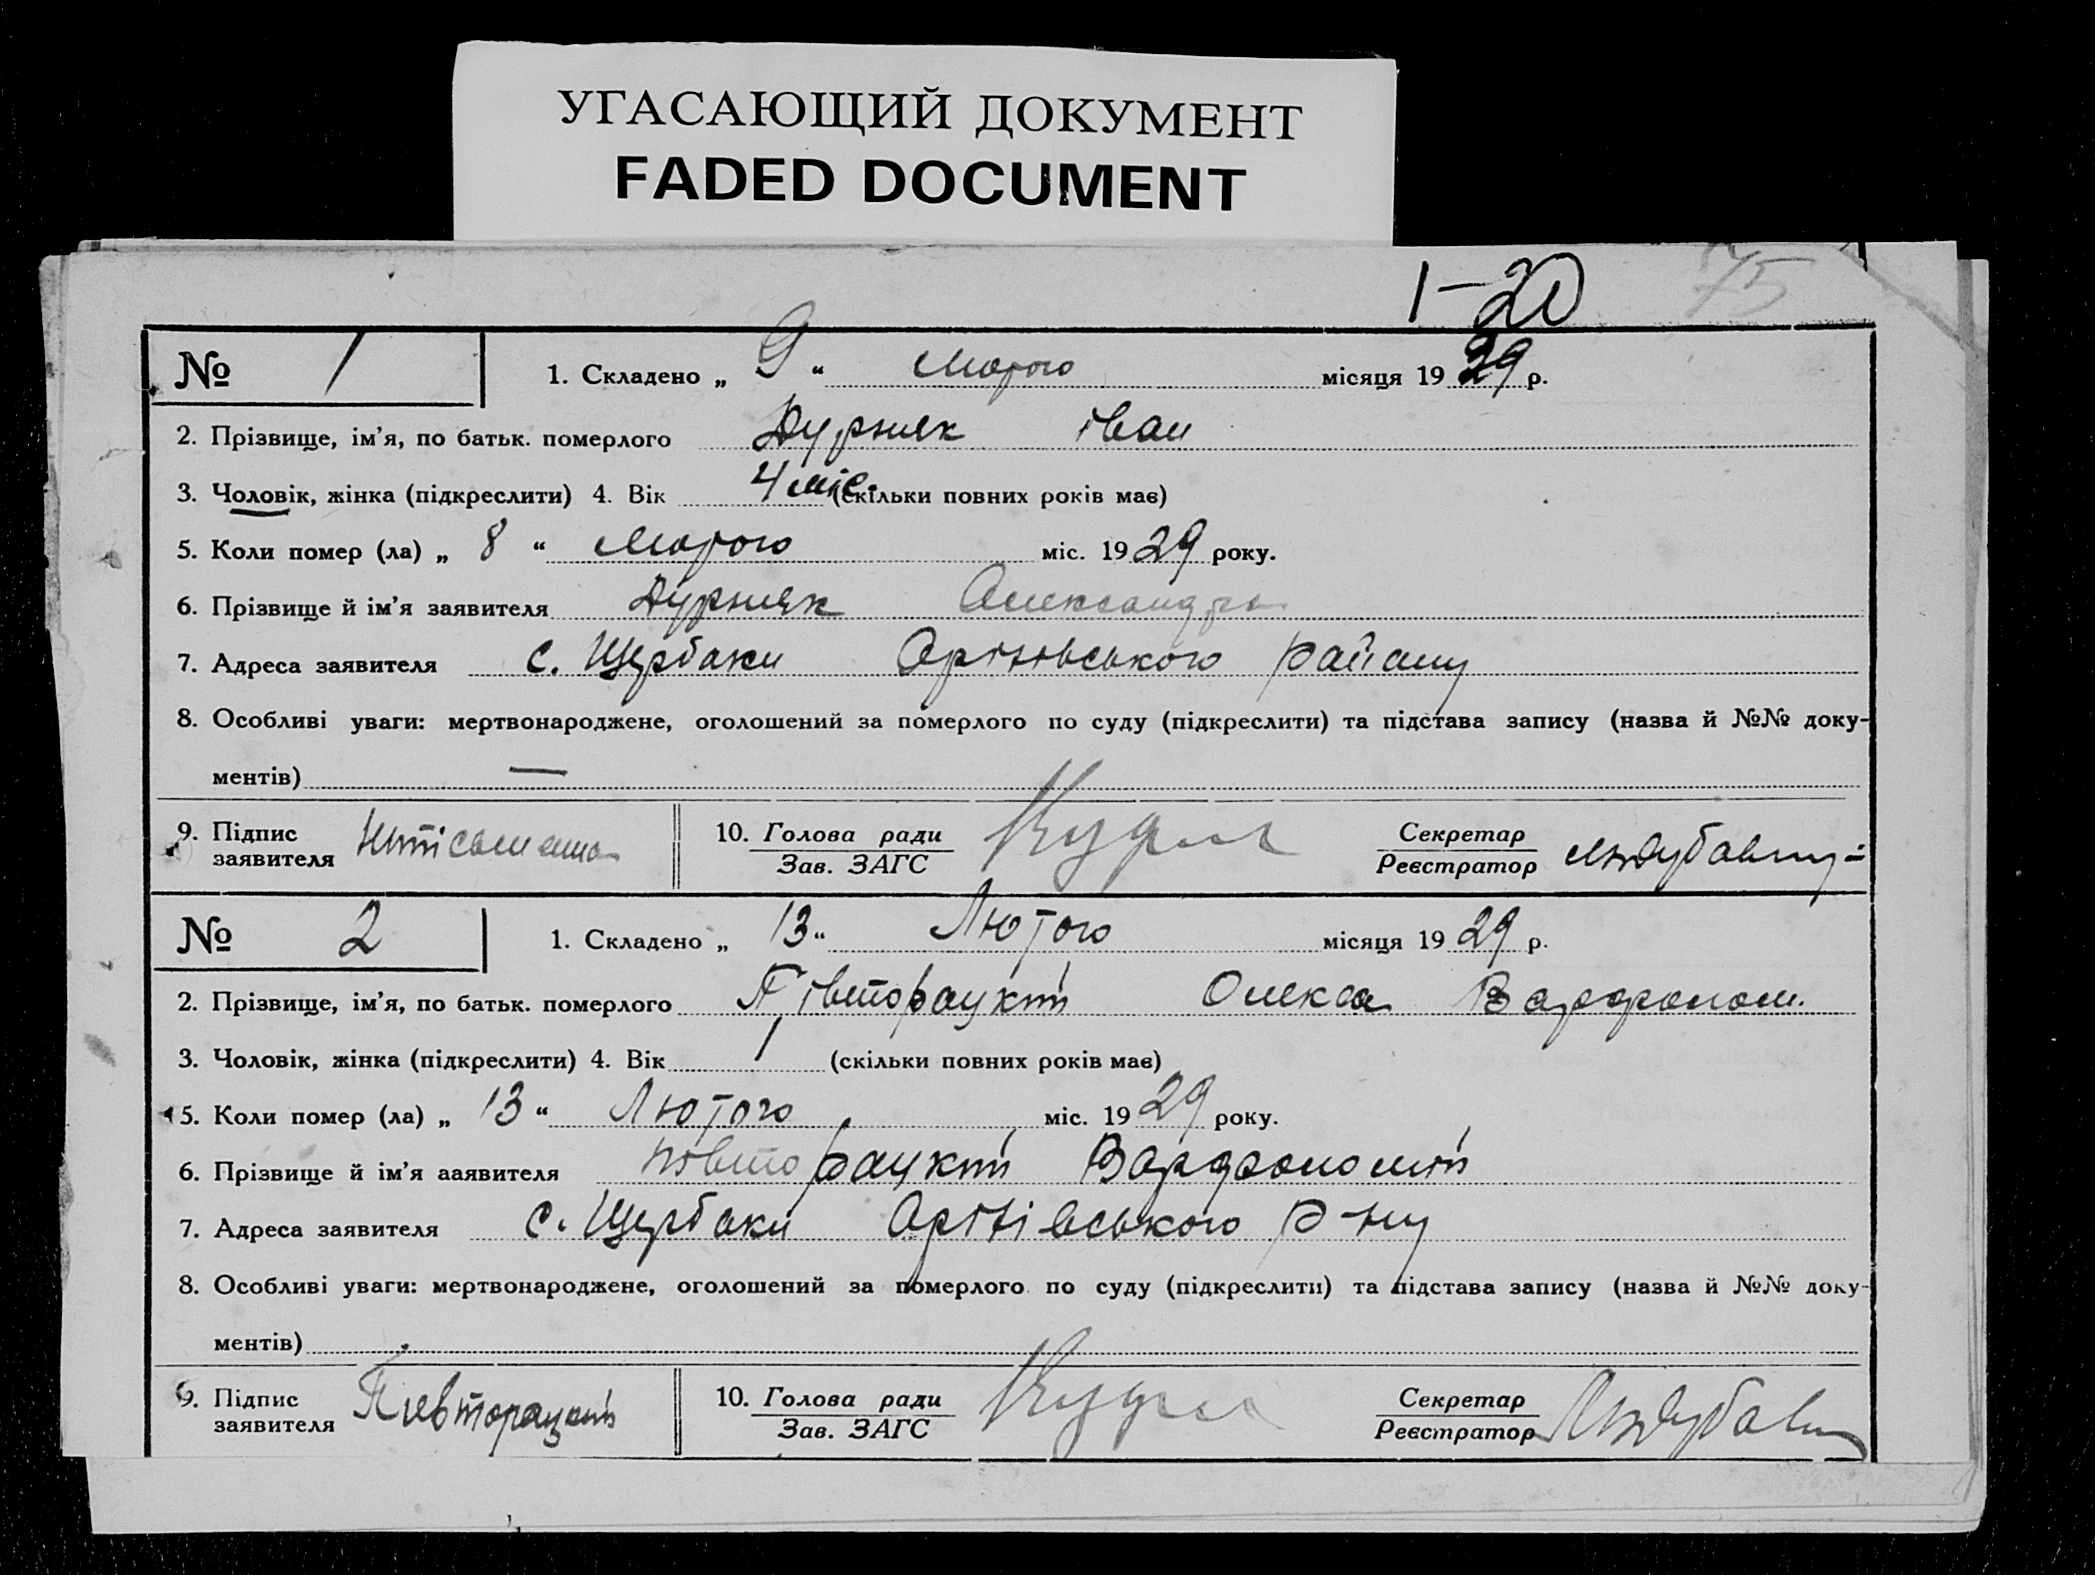 УГАСАЮЩИЙ ДОКУМЕНТ
FADED DOCUMENT
1-20 75
№ 1 1. Складено „ 9 “ Лютого місяця 19 29 р.
2. Прізвище, ім’я, по батьк. померлого Дурняк іван
3. Чоловік, жінка (підкреслити) 4. Вік 4 міс. (скільки повних років має)
5. Коли помер (ла) „ 8 “ Лютого міс. 19 29 року.
6. Прізвище й ім’я заявителя Дурняк Олександра
7. Адреса заявителя с. Щербаки Оратівського району
8. Особливі уваги: мертвонароджене, оголошений за померлого по суду (підкреслити) та підстава запису (назва й №№ доку-
ментів) —
9. Підпис заявителя
10. Голова ради
Зав. ЗАГС
Секретар
Реєстратор
№ 2 1. Складено „ 13 “ Лютого місяця 19 29 р.
2. Прізвище, ім’я, по батьк. померлого Півторацкий Олекса Варфолом.
3. Чоловік, жінка (підкреслити) 4. Вік 1 (скільки повних років має)
5. Коли помер (ла) „ 13 “ Лютого міс. 19 29 року.
6. Прізвище й ім’я ааявителя Півторацкий Варфоломій
7. Адреса заявителя с. Щербаки Оратівського р-ну
8. Особливі уваги: мертвонароджене, оголошений за померлого по суду (підкреслити) та підстава запису (назва й №№ доку-
ментів)
9. Підпис заявителя Пивторацкий
10. Голова ради
Зав. ЗАГС
Секретар
Реєстратор